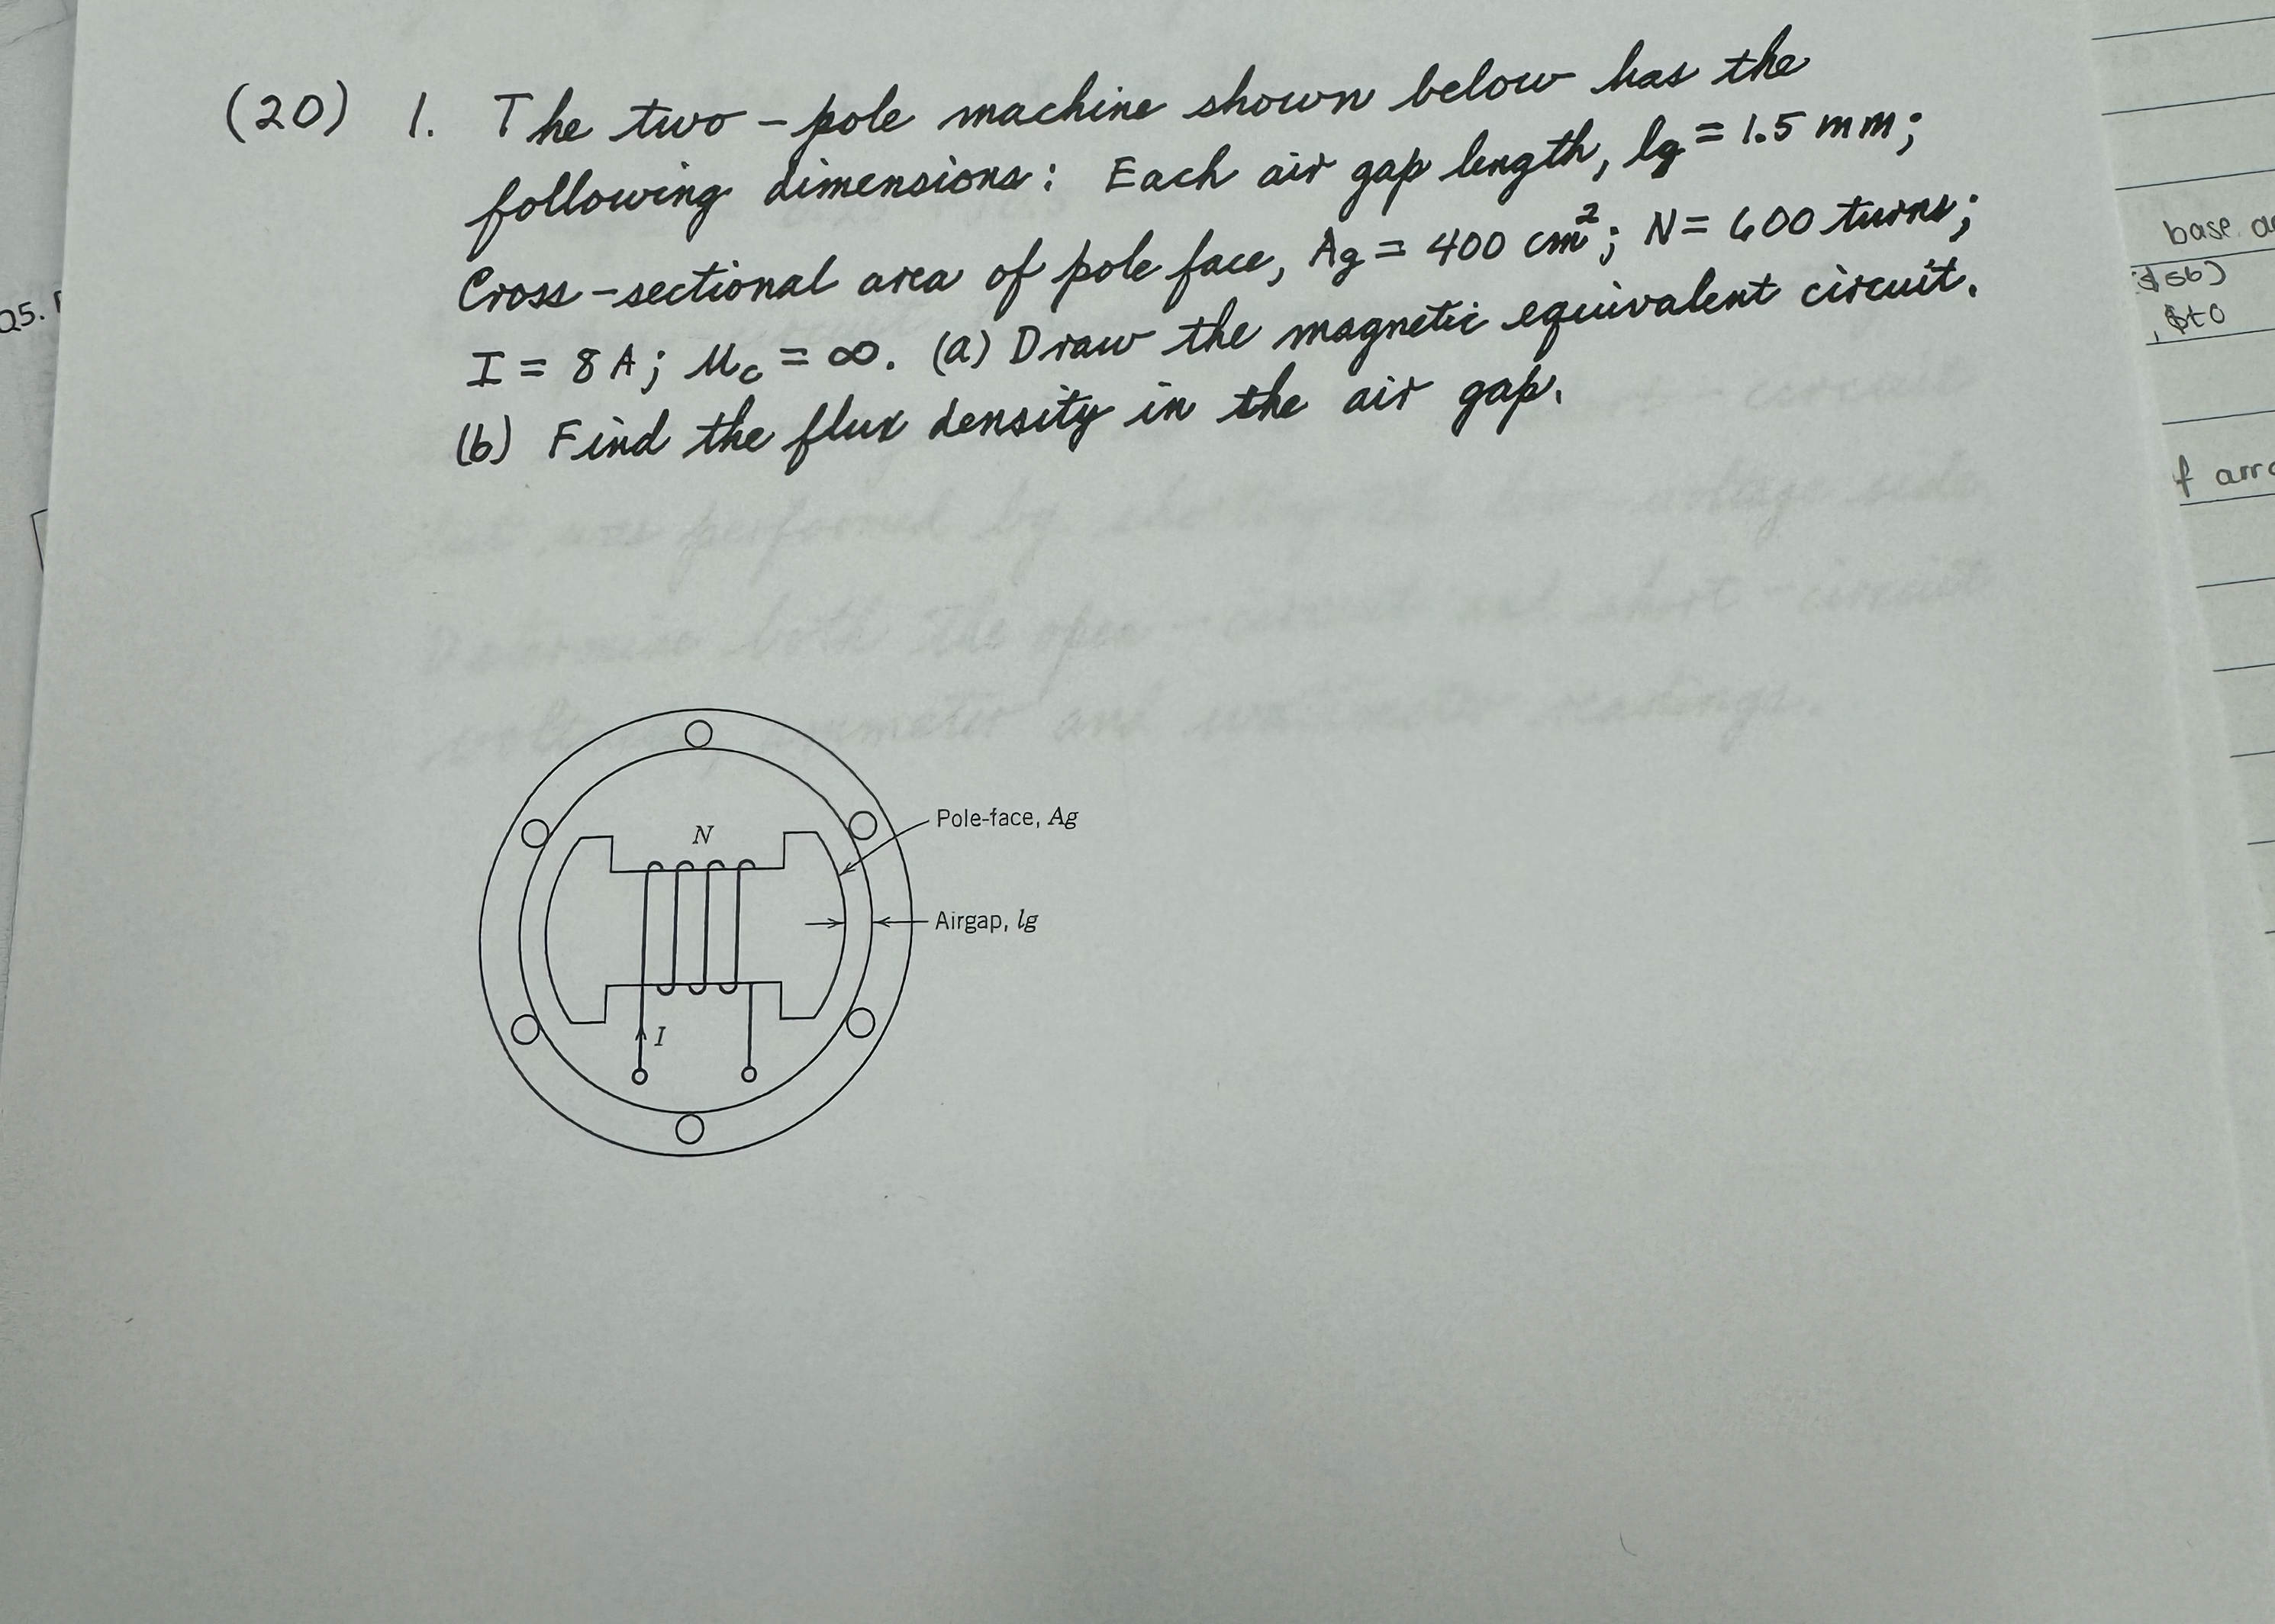 (20) 1. The two-pole machine shown below has the
following dimensions: Each air gap length, lg = 1.5 mm;
Cross-sectional area of pole face, Ag = 400 cm²; N = 600 turns;
I = 8 A; Mc = ∞. (a) Draw the magnetic equivalent circuit.
(b) Find the flux density in the air gap.
N
Pole-face, Ag
Airgap, lg
I
Q5.
base
, $to
f